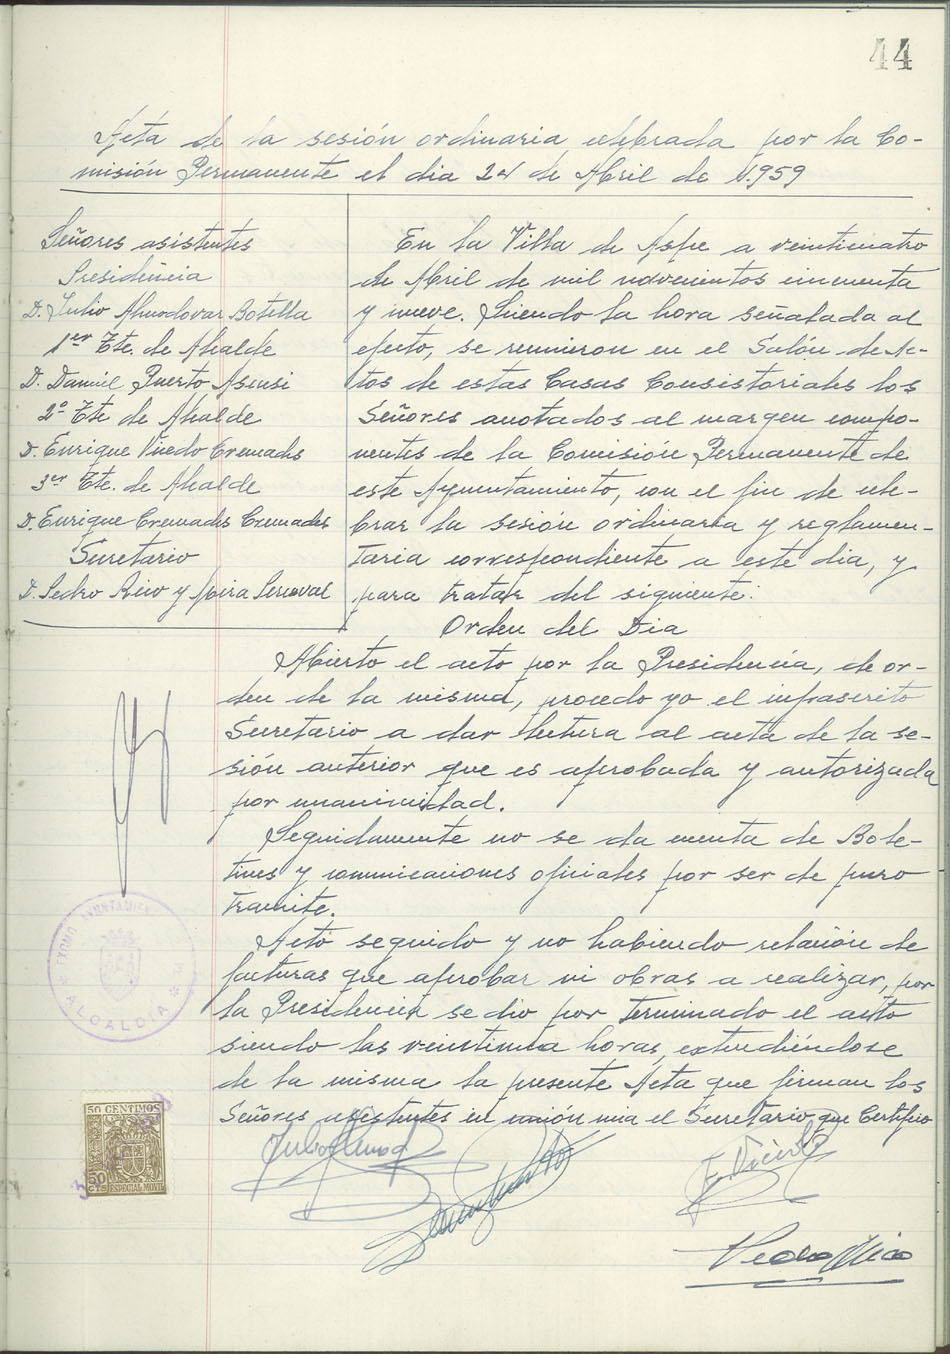 44
Acta de la sesión ordinaria celebrada por la Co-
misión Permanente el dia 24 de Abril de 1.959
Señores asistentes
Presidencia
D. Julio Almodovar Botella
1er Tte. de Alcalde
D. Daniel Puerto Asensi
2º Tte de Alcalde
D. Enrique Viñedo Cremades
3er Tte. de Alcalde
D. Enrique Cremades Cremades
Secretario
D. Pedro Rico y Perceval
En la Villa de Aspe a veinticuatro
de Abril de mil novecientos cincuenta
y nueve. Siendo la hora señalada al
efecto, se reunieron en el Salón de Ac-
tos de estas Casas Consistoriales los
Señores anotados al margen compo-
nentes de la Comisión Permanente de
este Ayuntamiento, con el fin de cele-
brar la sesión ordinaria y reglamen-
taria correspondiente a este dia, y
para tratar del siguiente:
Orden del Dia
Abierto el acto por la Presidencia, de or-
den de la misma, procedo yo el infrascrito
Secretario a dar lectura al acta de la se-
sión anterior que es aprobada y autorizada
por unanimidad.
Seguidamente no se da cuenta de Bole-
tines y comunicaciones oficiales por ser de puro
tramite.
Acto seguido y no habiendo relación de
facturas que aprobar ni obras a realizar, por
la Presidencia se dio por terminado el acto
siendo las veintiuna horas, extendiéndose
de la misma la presente Acta que firman los
Señores asistentes en unión mia el Secretario, que Certifico
EXCMO. AYUNTAMIEN
ALCALDÍA
50 CENTIMOS
50
CTS ESPECIAL MOVIL
Julio Almod
Pedro Rico